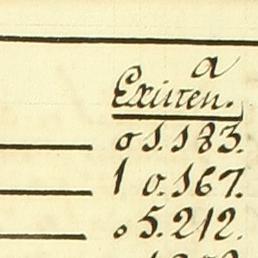 a
Existen.
01.183.
10.167.
05.212.